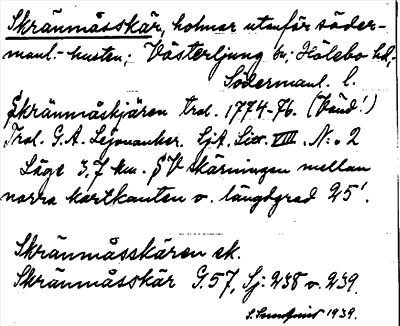 Skränmåsskär, holmar utanför söder-
manl.-kusten; Västerljung sn; Hölebo hd,
Södermanl. l.
Skränmåskjären trol. 1774-76. (Vänd!)
Trol. G.A. Lejonanker. SjA, Litt. VIII. N:o 2
Läge 3,7 km. SV skärningen mellan
norra kartkanten o. längdgrad 25'.
Skränmåsskären ek.
Skränmåsskär G.57, Sj: 238 o. 239.
1939.